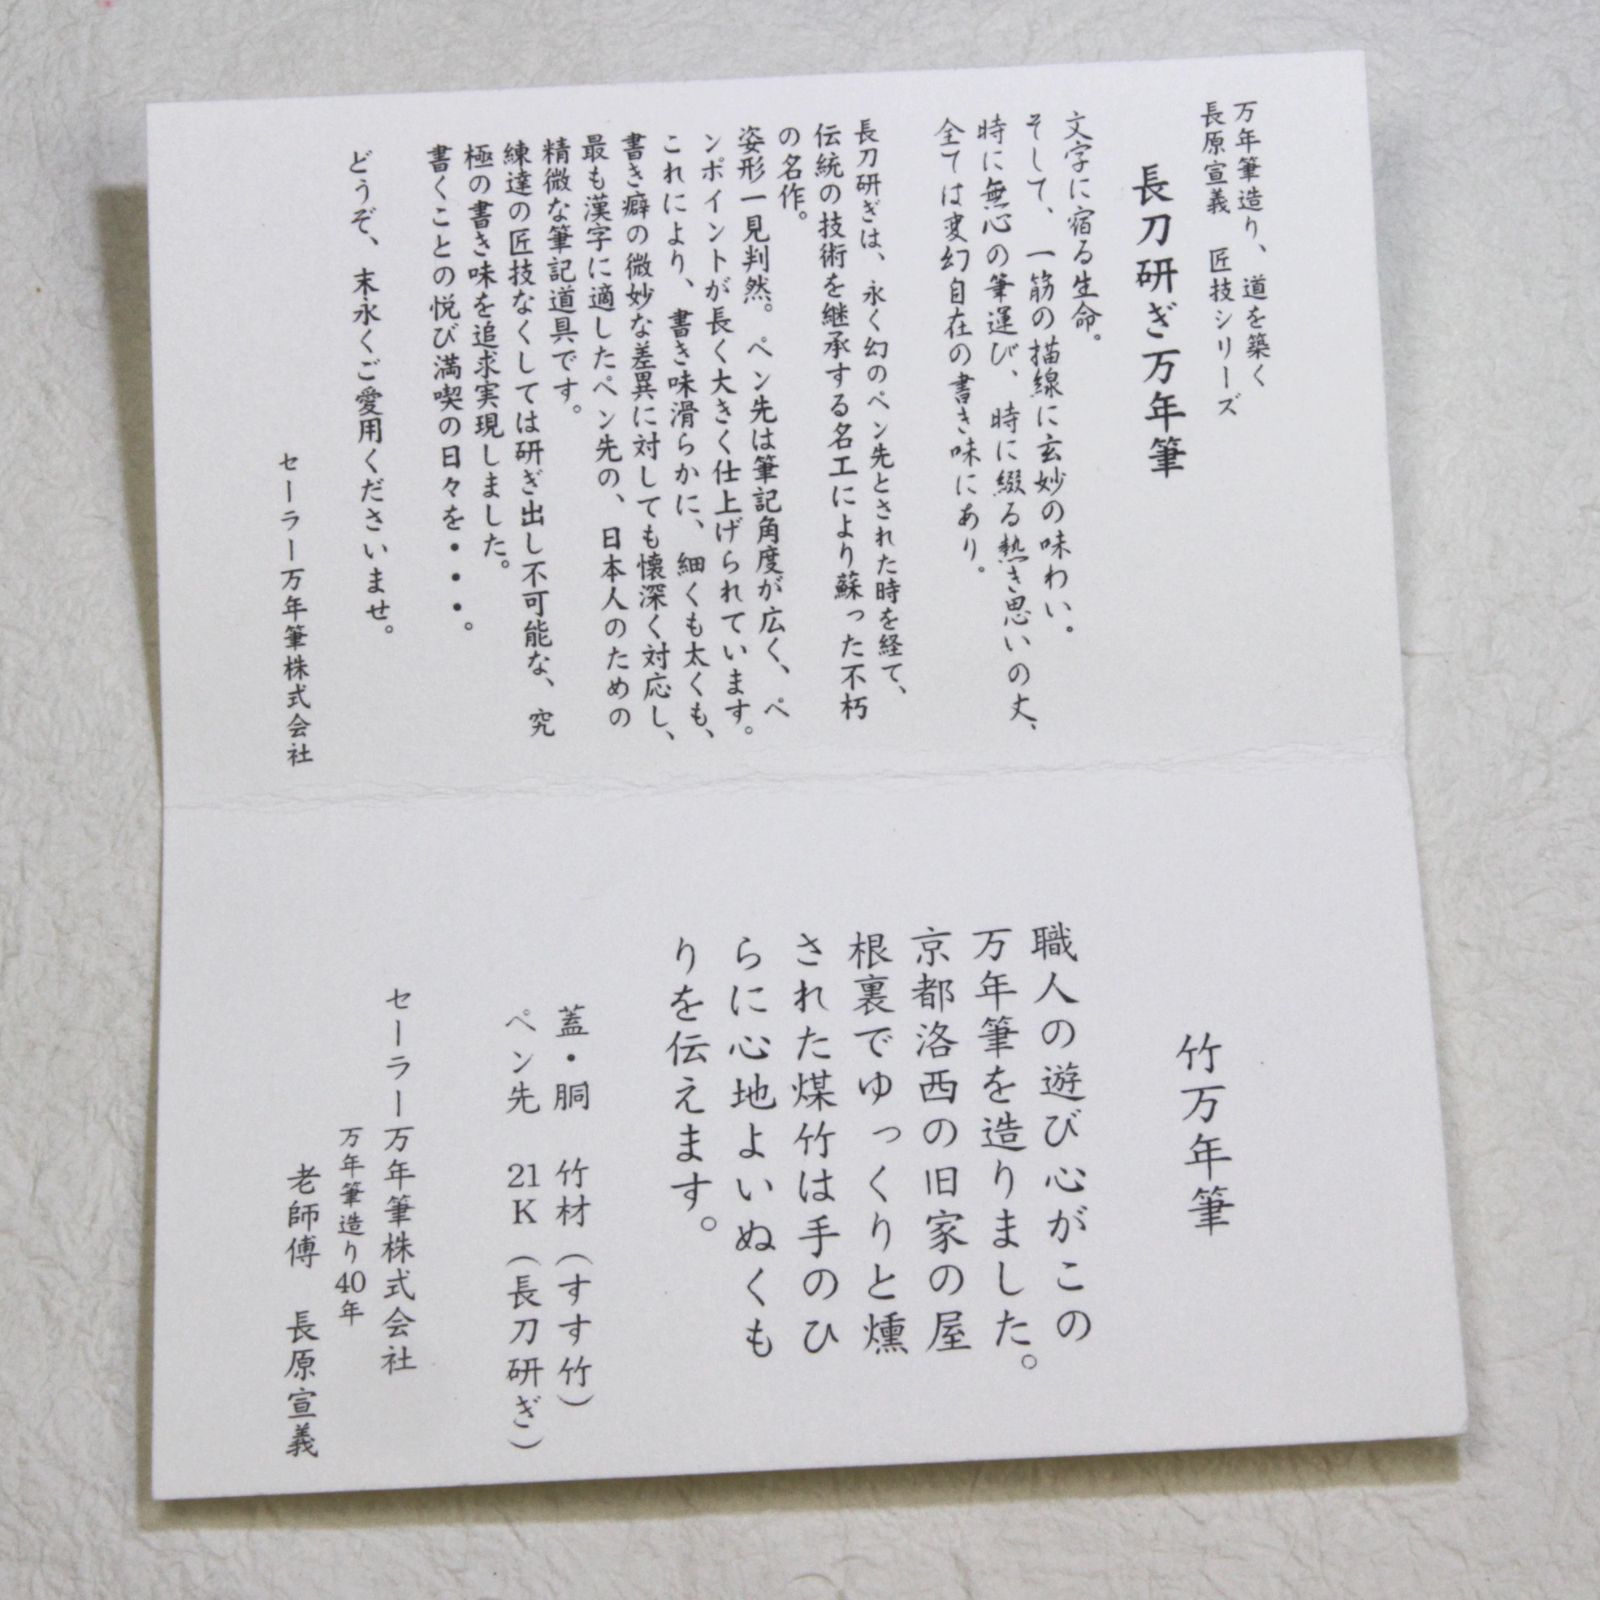 万年筆造り、道を築く
長原宣義　匠技シリーズ
長刀研ぎ万年筆
文字に宿る生命。
そして、一筋の描線に玄妙の味わい。
時に無心の筆運び、時に綴る熱き思いの丈、
全ては変幻自在の書き味にあり。
長刀研ぎは、永く幻のペン先とされた時を経て、
伝統の技術を継承する名工により蘇った不朽
の名作。
姿形一見判然。ペン先は筆記角度が広く、ペ
ンポイントが長く大きく仕上げられています。
これにより、書き味滑らかに、細くも太くも、
書き癖の微妙な差異に対しても懐深く対応し、
最も漢字に適したペン先の、日本人のための
精微な筆記道具です。
練達の匠技なくしては研ぎ出し不可能な、究
極の書き味を追求実現しました。
書くことの悦び満喫の日々を・・・。
どうぞ、末永くご愛用くださいませ。
セーラー万年筆株式会社
竹万年筆
職人の遊び心がこの
万年筆を造りました。
京都洛西の旧家の屋
根裏でゆっくりと燻
された煤竹は手のひ
らに心地よいぬくも
りを伝えます。
蓋・胴　竹材（すす竹）
ペン先　21K（長刀研ぎ）
セーラー万年筆株式会社
万年筆造り40年
老師傅　長原宣義